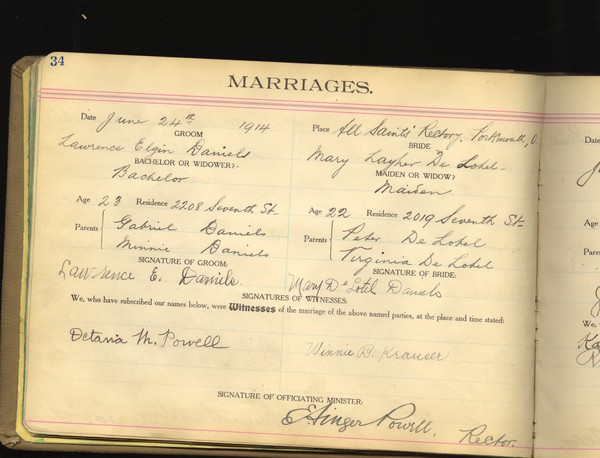 34
MARRIAGES.
Date June 24th 1914 Place All Saints' Rectory, Portsmouth, O.
GROOM BRIDE
Lawrence Elgin Daniels Mary Layher De Lotel
BACHELOR OR WIDOWER? MAIDEN OR WIDOW?
Bachelor Maiden
Age 23 Residence 2208 Seventh St. Age 22 Residence 2019 Seventh St.
Parents Gabriel Daniels Parents Peter De Lotel
Minnie Daniels Virginia De Lotel
SIGNATURE OF GROOM: SIGNATURE OF BRIDE:
Lawrence E. Daniels. Mary De Lotel Daniels
SIGNATURES OF WITNESSES:
We, who have subscribed our names below, were Witnesses of the marriage of the above named parties, at the place and time stated:
Octavia M. Powell Winnie B. Krauser
SIGNATURE OF OFFICIATING MINISTER:
E Ainger Powell. Rector.
Date
Place
Age
Parents
We,